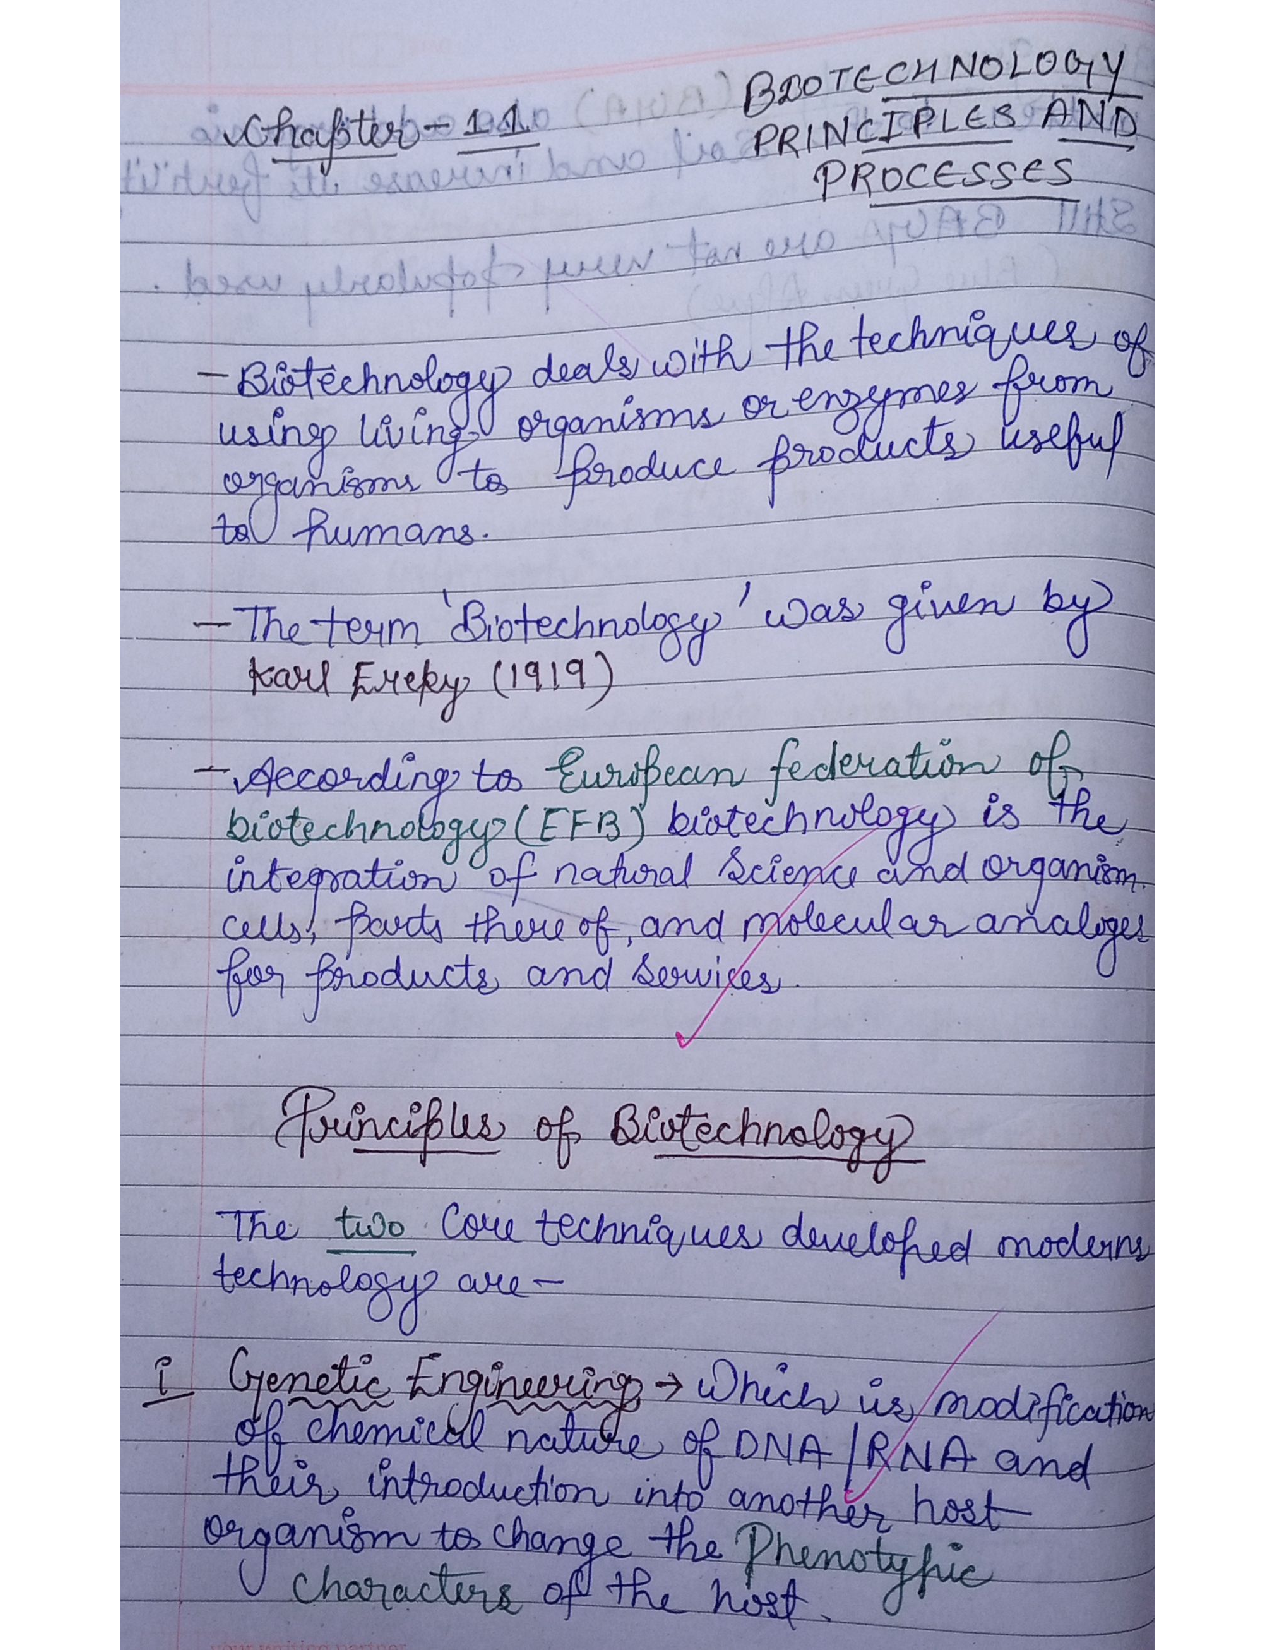 Chapter - 11
BIOTECHNOLOGY
PRINCIPLES AND
PROCESSES
- Biotechnology deals with the techniques of
using living organisms or enzymes from
organisms to produce products useful
to humans.
- The term 'Biotechnology' was given by
Karl Ereky (1919)
- According to European federation of
biotechnology (EFB) biotechnology is the
integration of natural Science and organism
cells, parts there of, and molecular analoges
for products and services.
Principles of Biotechnology
The two Core techniques developed modern
technology are -
i Genetic Engineering → Which is modification
of chemical nature of DNA/RNA and
their introduction into another host
organism to change the Phenotypic
characters of the host.